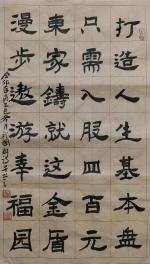 打造人生基本盘
只需入股四百元
東家鑄就这金盾
漫步遨游幸福园